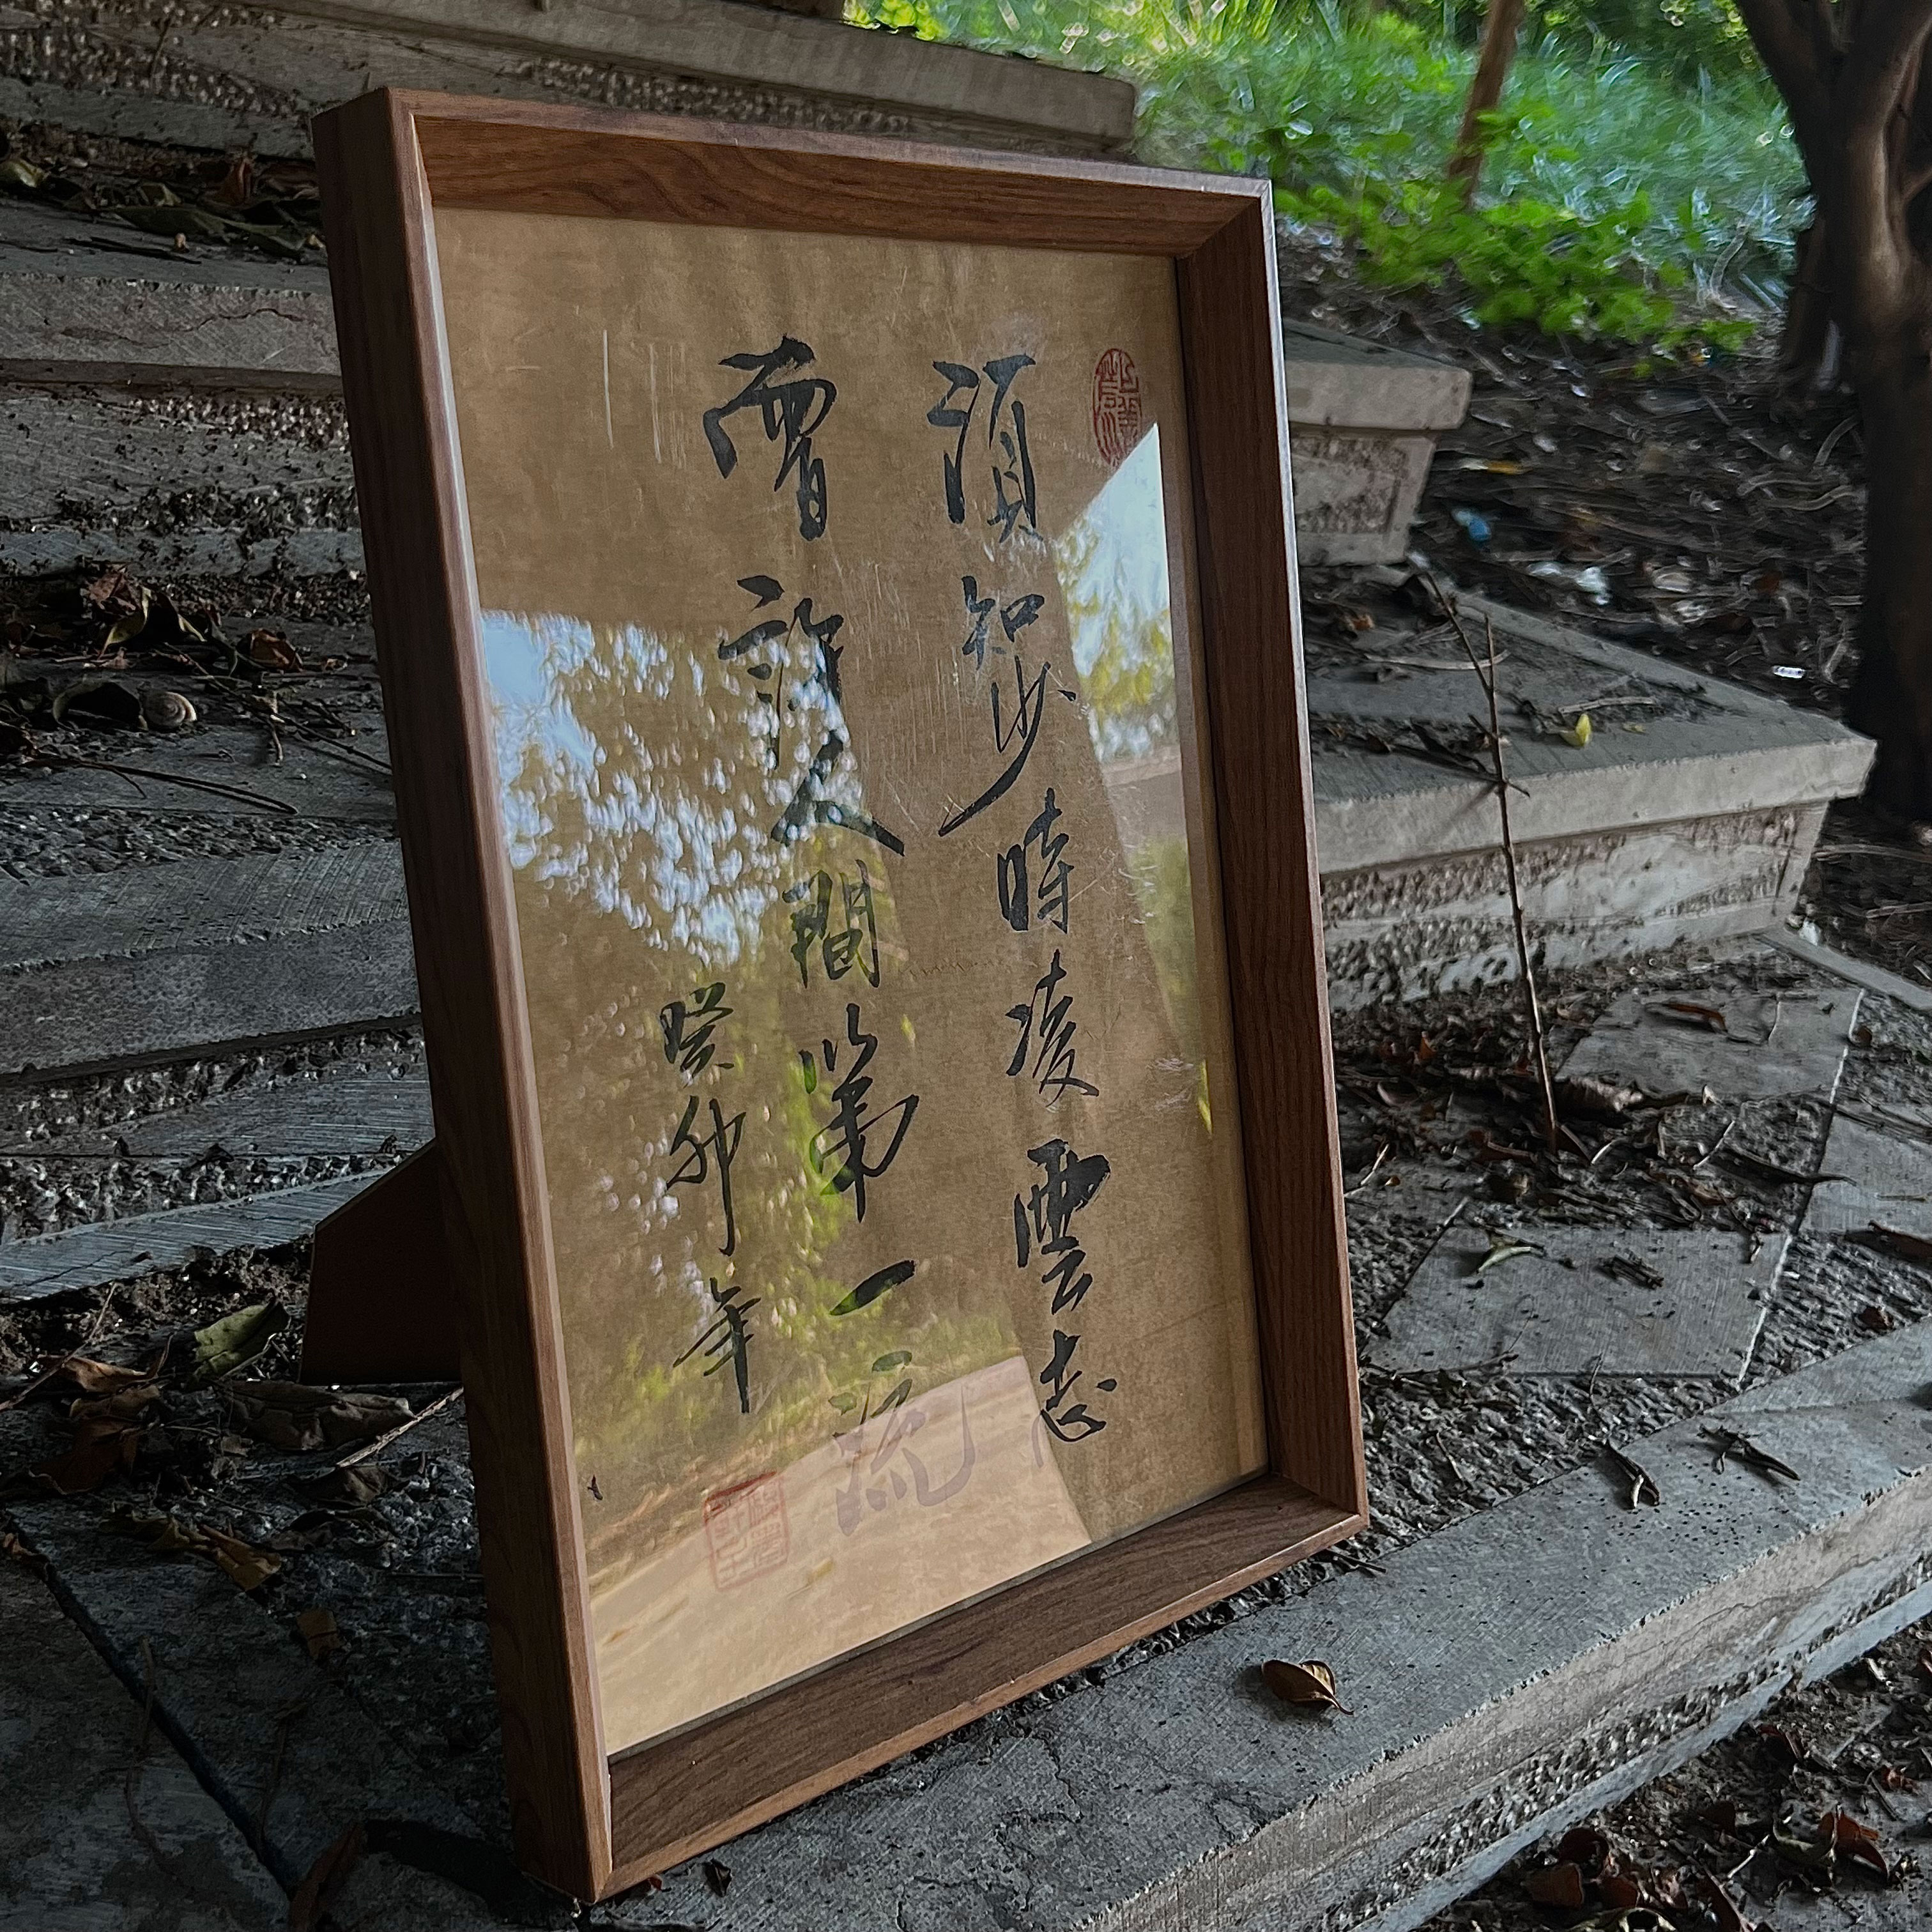 須知少時凌雲志
曾許人間第一流
癸卯年